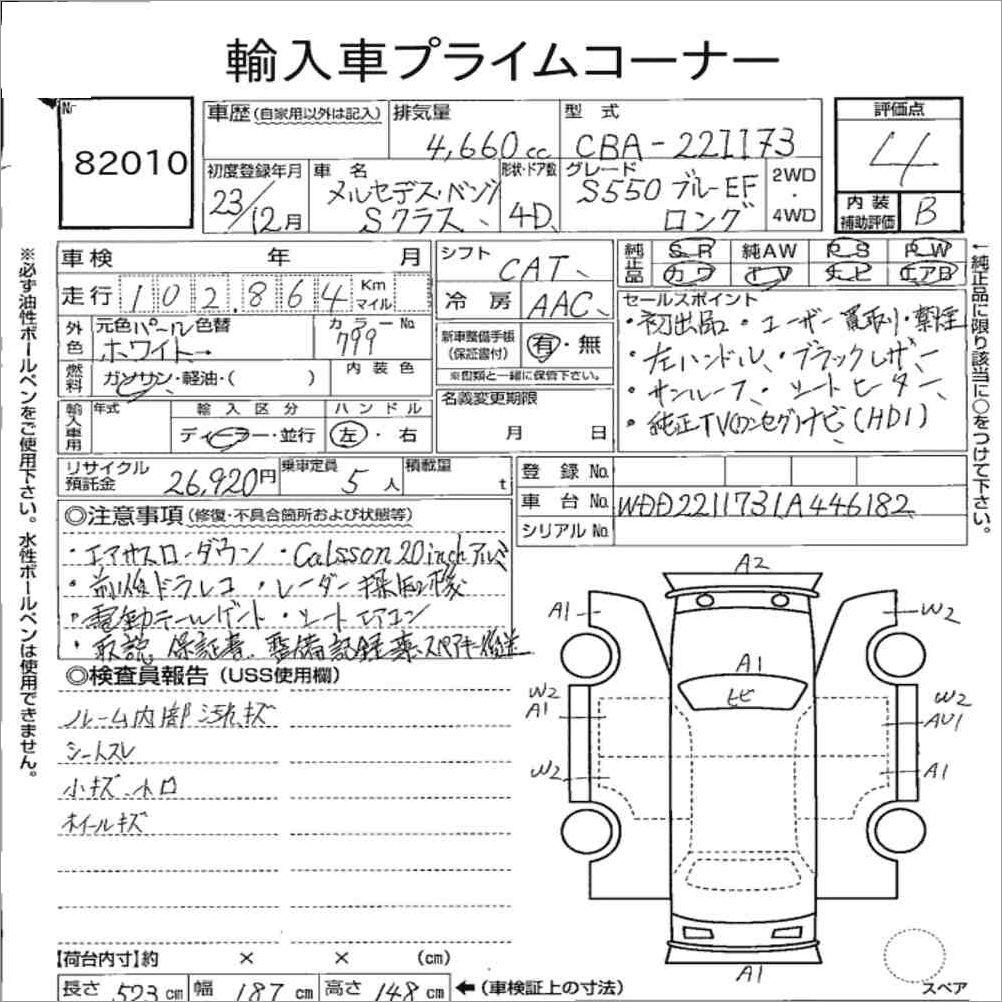 輸入車プライムコーナー
№
82010
車歴 (自家用以外は記入)
排気量
4,660cc
型式
CBA-221173
評価点
4
初度登録年月
23/12月
車名
メルセデス・ベンツ
Sクラス
形状・ドア数
4D
グレード
S550 ブルーEF
ロング
2WD
・
4WD
内装
補助評価
B
車検 年 月
走行 102,864 Km マイル
外色
元色パール色替
ホワイト→
カラーNo
799
燃料
ガソリン・軽油・( )
内装色
輸入車用
年式
輸入区分
ディーラー・並行
ハンドル
左・右
シフト
CAT
冷房
AAC
新車整備手帳
(保証書付)
有・無
※書類と一緒に保管下さい。
名義変更期限
月 日
純正品
SR 純AW PS PW
カワ ナビ TV エアB
セールスポイント
・初出品・ユーザー買取り・禁煙
・左ハンドル・ブラックレザー
・サンルーフ・シートヒーター
・純正TV(ワンセグ)ナビ(HDD)
←純正品に限り該当に○をつけて下さい。
※必ず油性ボールペンをご使用下さい。水性ボールペンは使用できません。
リサイクル
預託金
26,920円
乗車定員
5人
積載量
t
登録No.
車台No.
WDD2211731A446182
シリアルNo.
◎注意事項 (修復・不具合箇所および状態等)
・エアサスローダウン ・Calsson20inchアルミ
・前後ドラレコ ・レーダー探知機
・電動テールゲート ・シートエアコン
・取説 保証書 整備記録簿 スペアキー後送
◎検査員報告 (USS使用欄)
ルーム内部汚れキズ
シートスレ
小キズ、小凹
ホイールキズ
A2
A1
W2
A1
ヒビ
W2
A1
W2
AU1
W2
A1
A1
スペア
【荷台内寸】約 × × (cm)
長さ 523cm 幅 187cm 高さ 148cm ←(車検証上の寸法)